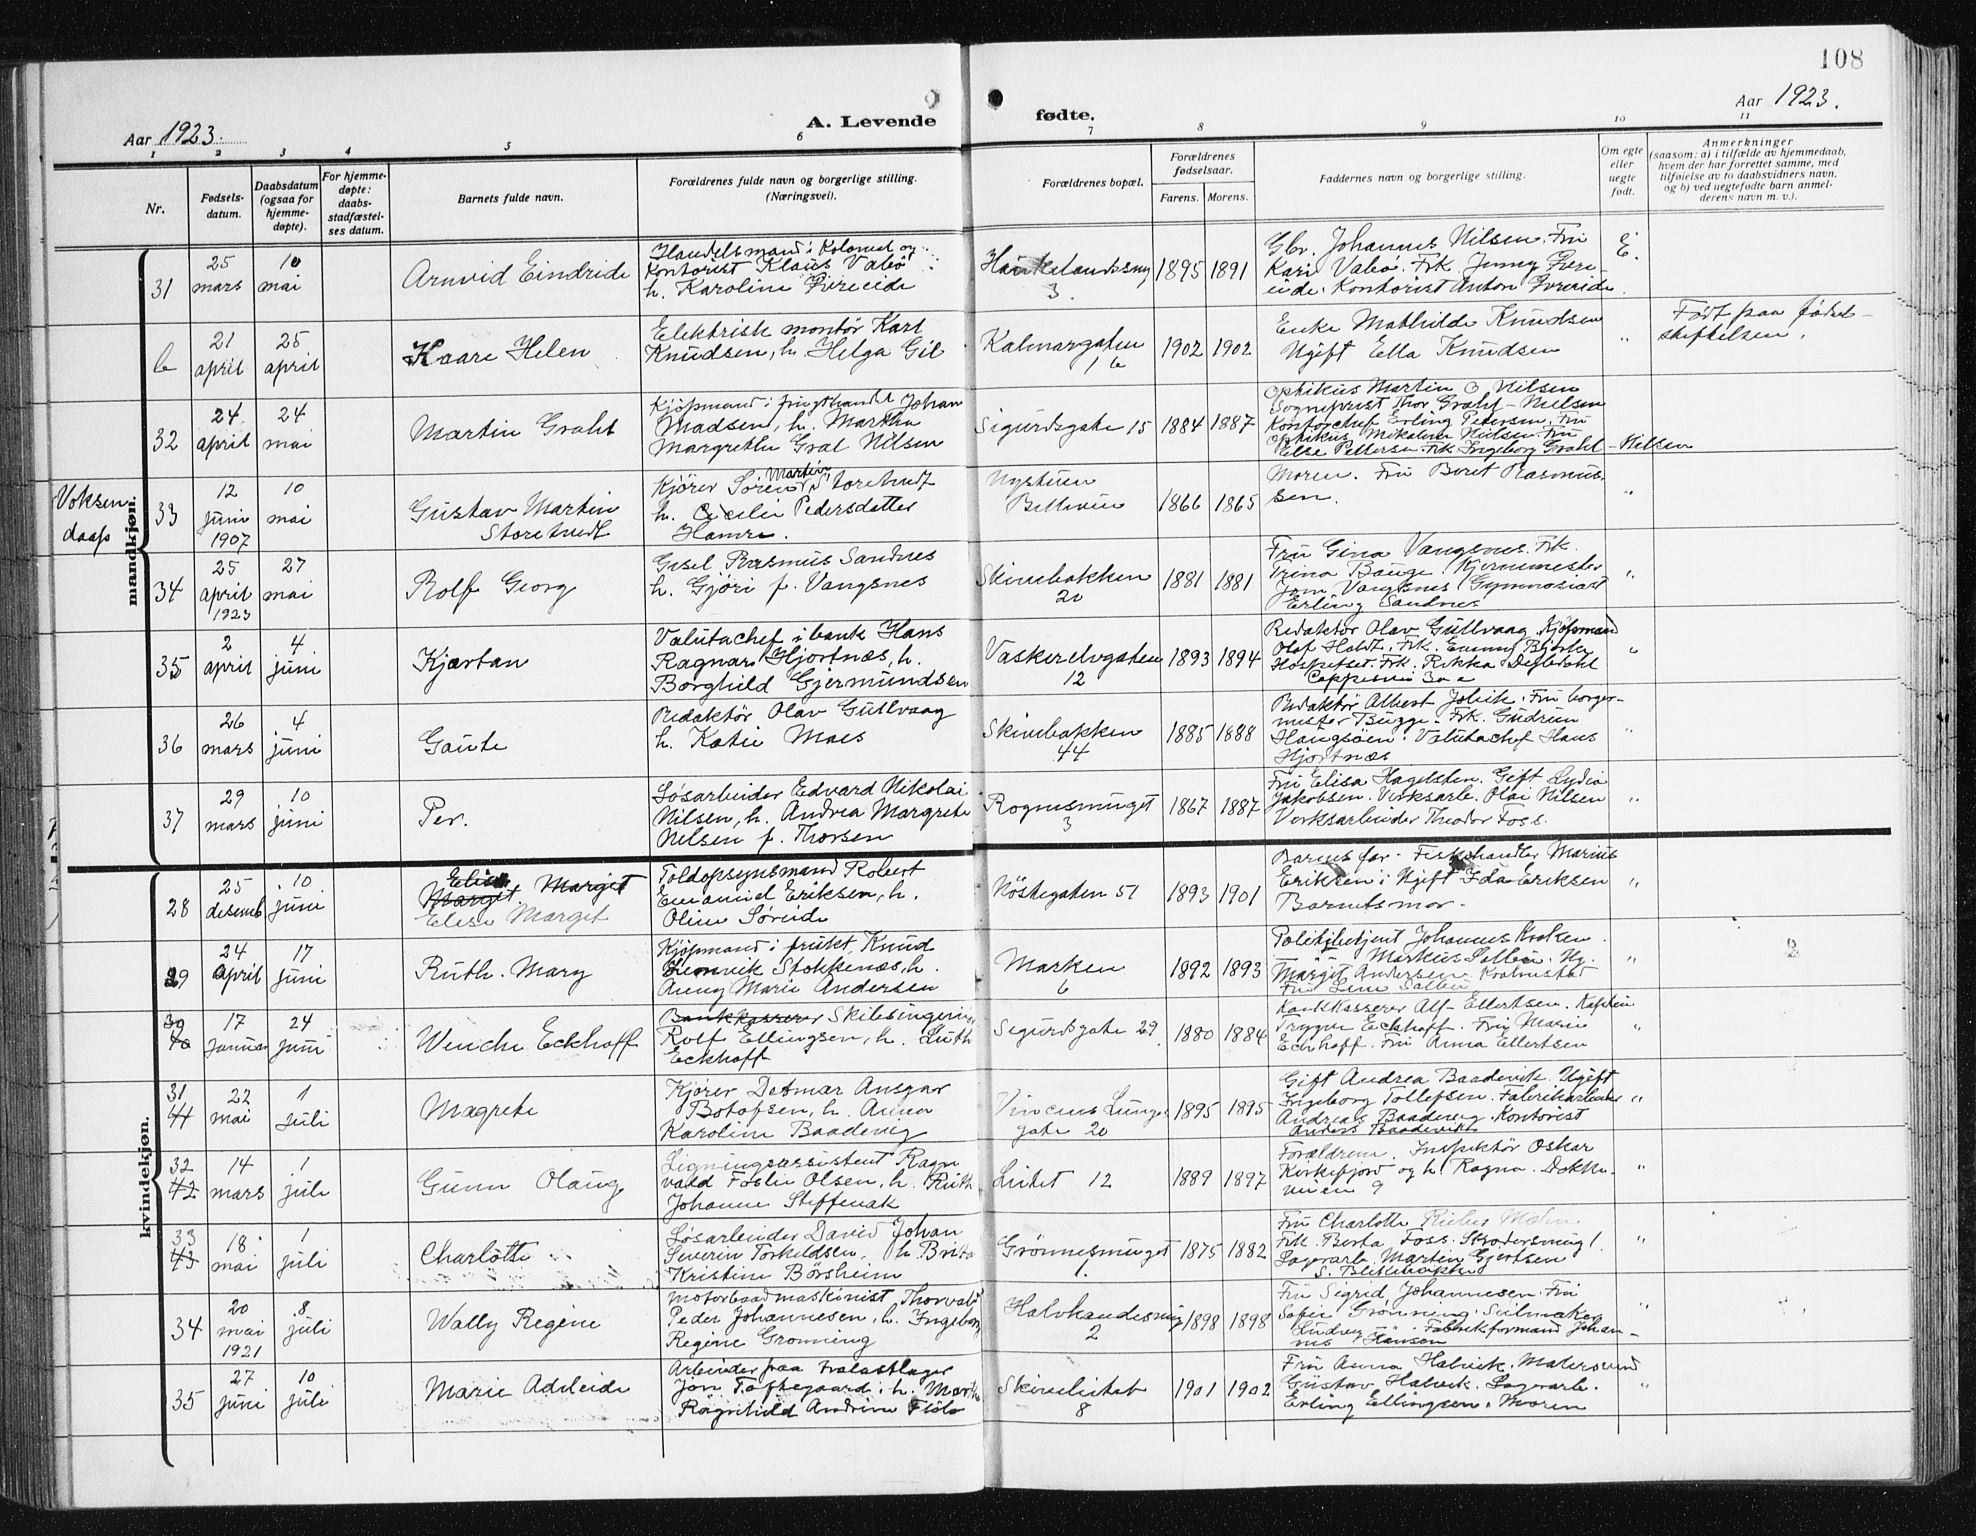 108
Aar 1923.
A. Levende
fødte.
Aar 1923.
1 2 3 4 5 6 7 8 9 10 11
Nr.
Fødsels-
datum.
Daabsdatum
(ogsaa for
hjemme-
døpte).
For hjemme-
døpte:
daabs-
stadfæstel-
ses datum.
Barnets fulde navn.
Forældrenes fulde navn og borgerlige stilling.
(Næringsvei).
Forældrenes bopæl.
Forældrenes
fødselsaar.
Farens. Morens.
Faddernes navn og borgerlige stilling.
Om egte
eller
uegte
født.
Anmerkninger
(saasom: a) i tilfælde av hjemmedaab,
hvem der har forrettet samme, med
tilføielse av to daabsvidners navn,
og b) ved uegtefødte barn anmel-
derens navn m. v.).
mandkjøn.
31
25
mars
10
mai
Arnvid Eindride
Handelsmand i Kolonial og
Kontorist Klaus Vabø
h. Karoline Grereide
Haukelandsvg
3.
1895 1891
Gbr. Johannes Nilsen. Fru
Kari Vabø. Frk. Jenny
Kontorist Anton
E.
b
21
april
25
april
Kaare Helen
Elektrisk montör Karl
Knudsen, h. Helga Gil
Kalmargaten
16
1902 1902
Enke Mathilde Knudsen
Ugift Ella Knudsen
"
Født paa fødsel-
stiftelsen.
32
24
april
24
mai
Martin Grahl
Kjöpmand i Johan
Madsen, h. Martha
Margrethe Gral Nilsen
Sigurdsgate 15
1884 1887
Optikus Martin O. Nilsen
Sogneprest Thor Grahl-Nielsen
Kontorchef Erling Petersen. Fru
Else Pettersen. Frk. Ingeborg Grahl-Nielsen
Voksen
daab
33
12
juni
1907
10
mai
Gustav Martin
Storetvedt
Kjører Søren Martin Storetvedt
h. Cecilie Pedersdatter
Hamre.
Nystuen
Bellevue
1866 1865
Moren. Fru Beret Rasmus-
sen.
"
34
25
april
1923
27
mai
Rolf Georg
Rasmus Sandnes
h. Gjöri f. Vangsnes
Skivebakken
20
1881 1881
Fru Gina Vangsnes. Frk.
Trina Bauge.
Vangsnes Gymnasiast
Erling Sandnes
"
35
2
april
4
juni
Kjartan
Valutachef i bank Hans
Ragnar Hjortnæs, h.
Borghild Gjermundsen
Vaskerelvgaten
12
1893 1894
Redaktør Olav Gullvaag Kjöpmand
Olaf Holdt. Frk.
"
36
26
mars
4
juni
Gaute
Redaktör Olav Gullvaag
h. Katie Moes
Skivebakken
44
1885 1888
Redaktør Albert Jolvik. Fru borger-
mester Bugge. Frk. Gudrun
Haugsöen. Valutachef Hans
Hjortnæs
"
37
29
mars
10
juni
Per.
Løsarbeider Edvard Nikolai
Nilsen, h. Andrea Margrete
Nilsen f. Thorsen
Rognesmuget
3
1867 1887
Fru Elisa Hagelsten. Gift Lydia
Jakobsen. Verksarb. Olai Nilsen
Verksarbeider Theodor Foss.
"
kvindekjøn.
28
25
desemb
10
juni
Elise Margit
Margit
Elise Margit
Toldopsynsmand Robert
Emanuel Eriksen, h.
Oline Søreide
Nöstegaten 51
1893 1901
Barnets far. Fiskehandler Marius
Eriksen. Ugift Ida Eriksen
Barnets mor.
"
29
24
April
17
juni
Ruth Mary
Kjöpmand i frukt Knud
Stokkenæs, h.
Anny Marie Andersen
Marken
6
1892 1893
Politibetjent Johannes Kroken
Margit Andersen
"
30
40
17
januar
24
juni
Wenche Eckhoff
Bankkasserer Skibsingeniør
Rolf Ellingsen, h. Luth
Eckhoff
Sigurdsgate 29
1880 1884
Bankkasserer Alf Ellertsen. Kaptein
Trygve Eckhoff. Fru Marie
Eckhoff. Fru Anna Ellertsen
"
31
41
22
mai
1
juli
Magrete
Kjører Detmar Ansgar
Botofsen, h. Anna
Karoline Baadevig
Vincens Lunges
gate 20
1895 1895
Gift Andrea Baadevik. Ugift
Ingeborg Tollefsen. Fabrikarbeider
Andreas Baadevig. Kontorist
Anders Baadevik
"
32
42
14
mars
1
juli
Gunn Olaug
Ligningsassistent Ragn
vald Foslie Olsen, h. Ruth
Johanne Steffenak
Lidet 12
1889 1897
Forældrene. Inspektör Oskar
Kirkefjord og h. Ragna. Dokke-
veien 9
"
33
43
18
mai
1
juli
Charlotte
Løsarbeider David Johan
Severin Torkildsen, h. Brita
Kristine Börsheim
Grönnesmuget
1.
1875 1882
Fru Charlotte
Frk. Berta Foss.
Lagerarb. Martin Gjertsen
"
34
20
mai
1921
8
juli
Wally Regine
Motorbaadmaskinist Thorvald
Peder Johannesen, h. Ingeborg
Regine Grönning
Halvkandesmug
2
1898 1898
Fru Sigrid Johannesen. Fru
Sofie Grönning. Seilmaker
Ludvig Fabrikformand Johan-
nes Hansen
"
35
27
juni
10
juli
Marie Adeleide
Arbeider paa Tralastlager
Jon Toftegaard, h. Marta
Ragnhild Andrine
8
1901 1902
Fru Anna Halvik. Malersvend
Gustav Halvik. Lagerarb.
Erling Ellingsen. Moren
"